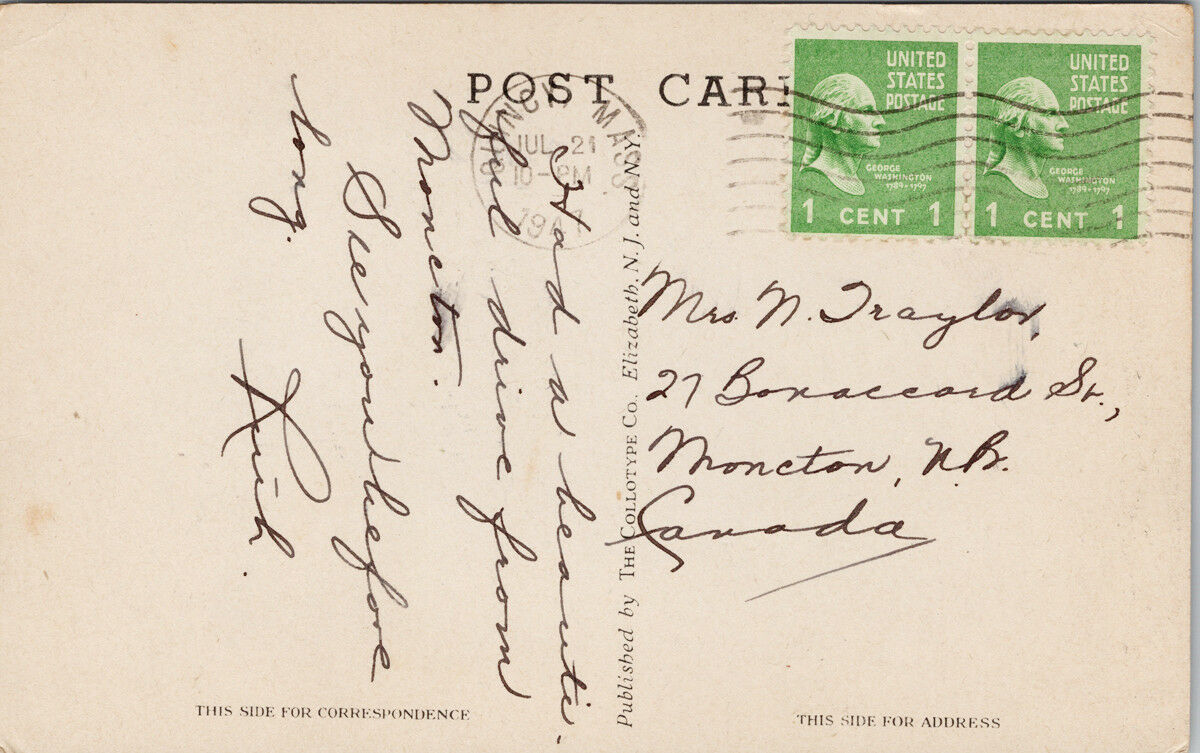 POST CARD
QUINCY MASS.
JUL 21
10-PM
1947
UNITED
STATES
POSTAGE
GEORGE
WASHINGTON
1789-1797
1 CENT 1
UNITED
STATES
POSTAGE
GEORGE
WASHINGTON
1789-1797
1 CENT 1
Had a beauti-
ful drive from
Moncton.
See you before
long.
Published by THE COLLOTYPE CO. Elizabeth, N.J. and N.Y.
Mrs. N. Traylor,
27 Bonaccord St.,
Moncton, N.B.
Canada
THIS SIDE FOR CORRESPONDENCE
THIS SIDE FOR ADDRESS